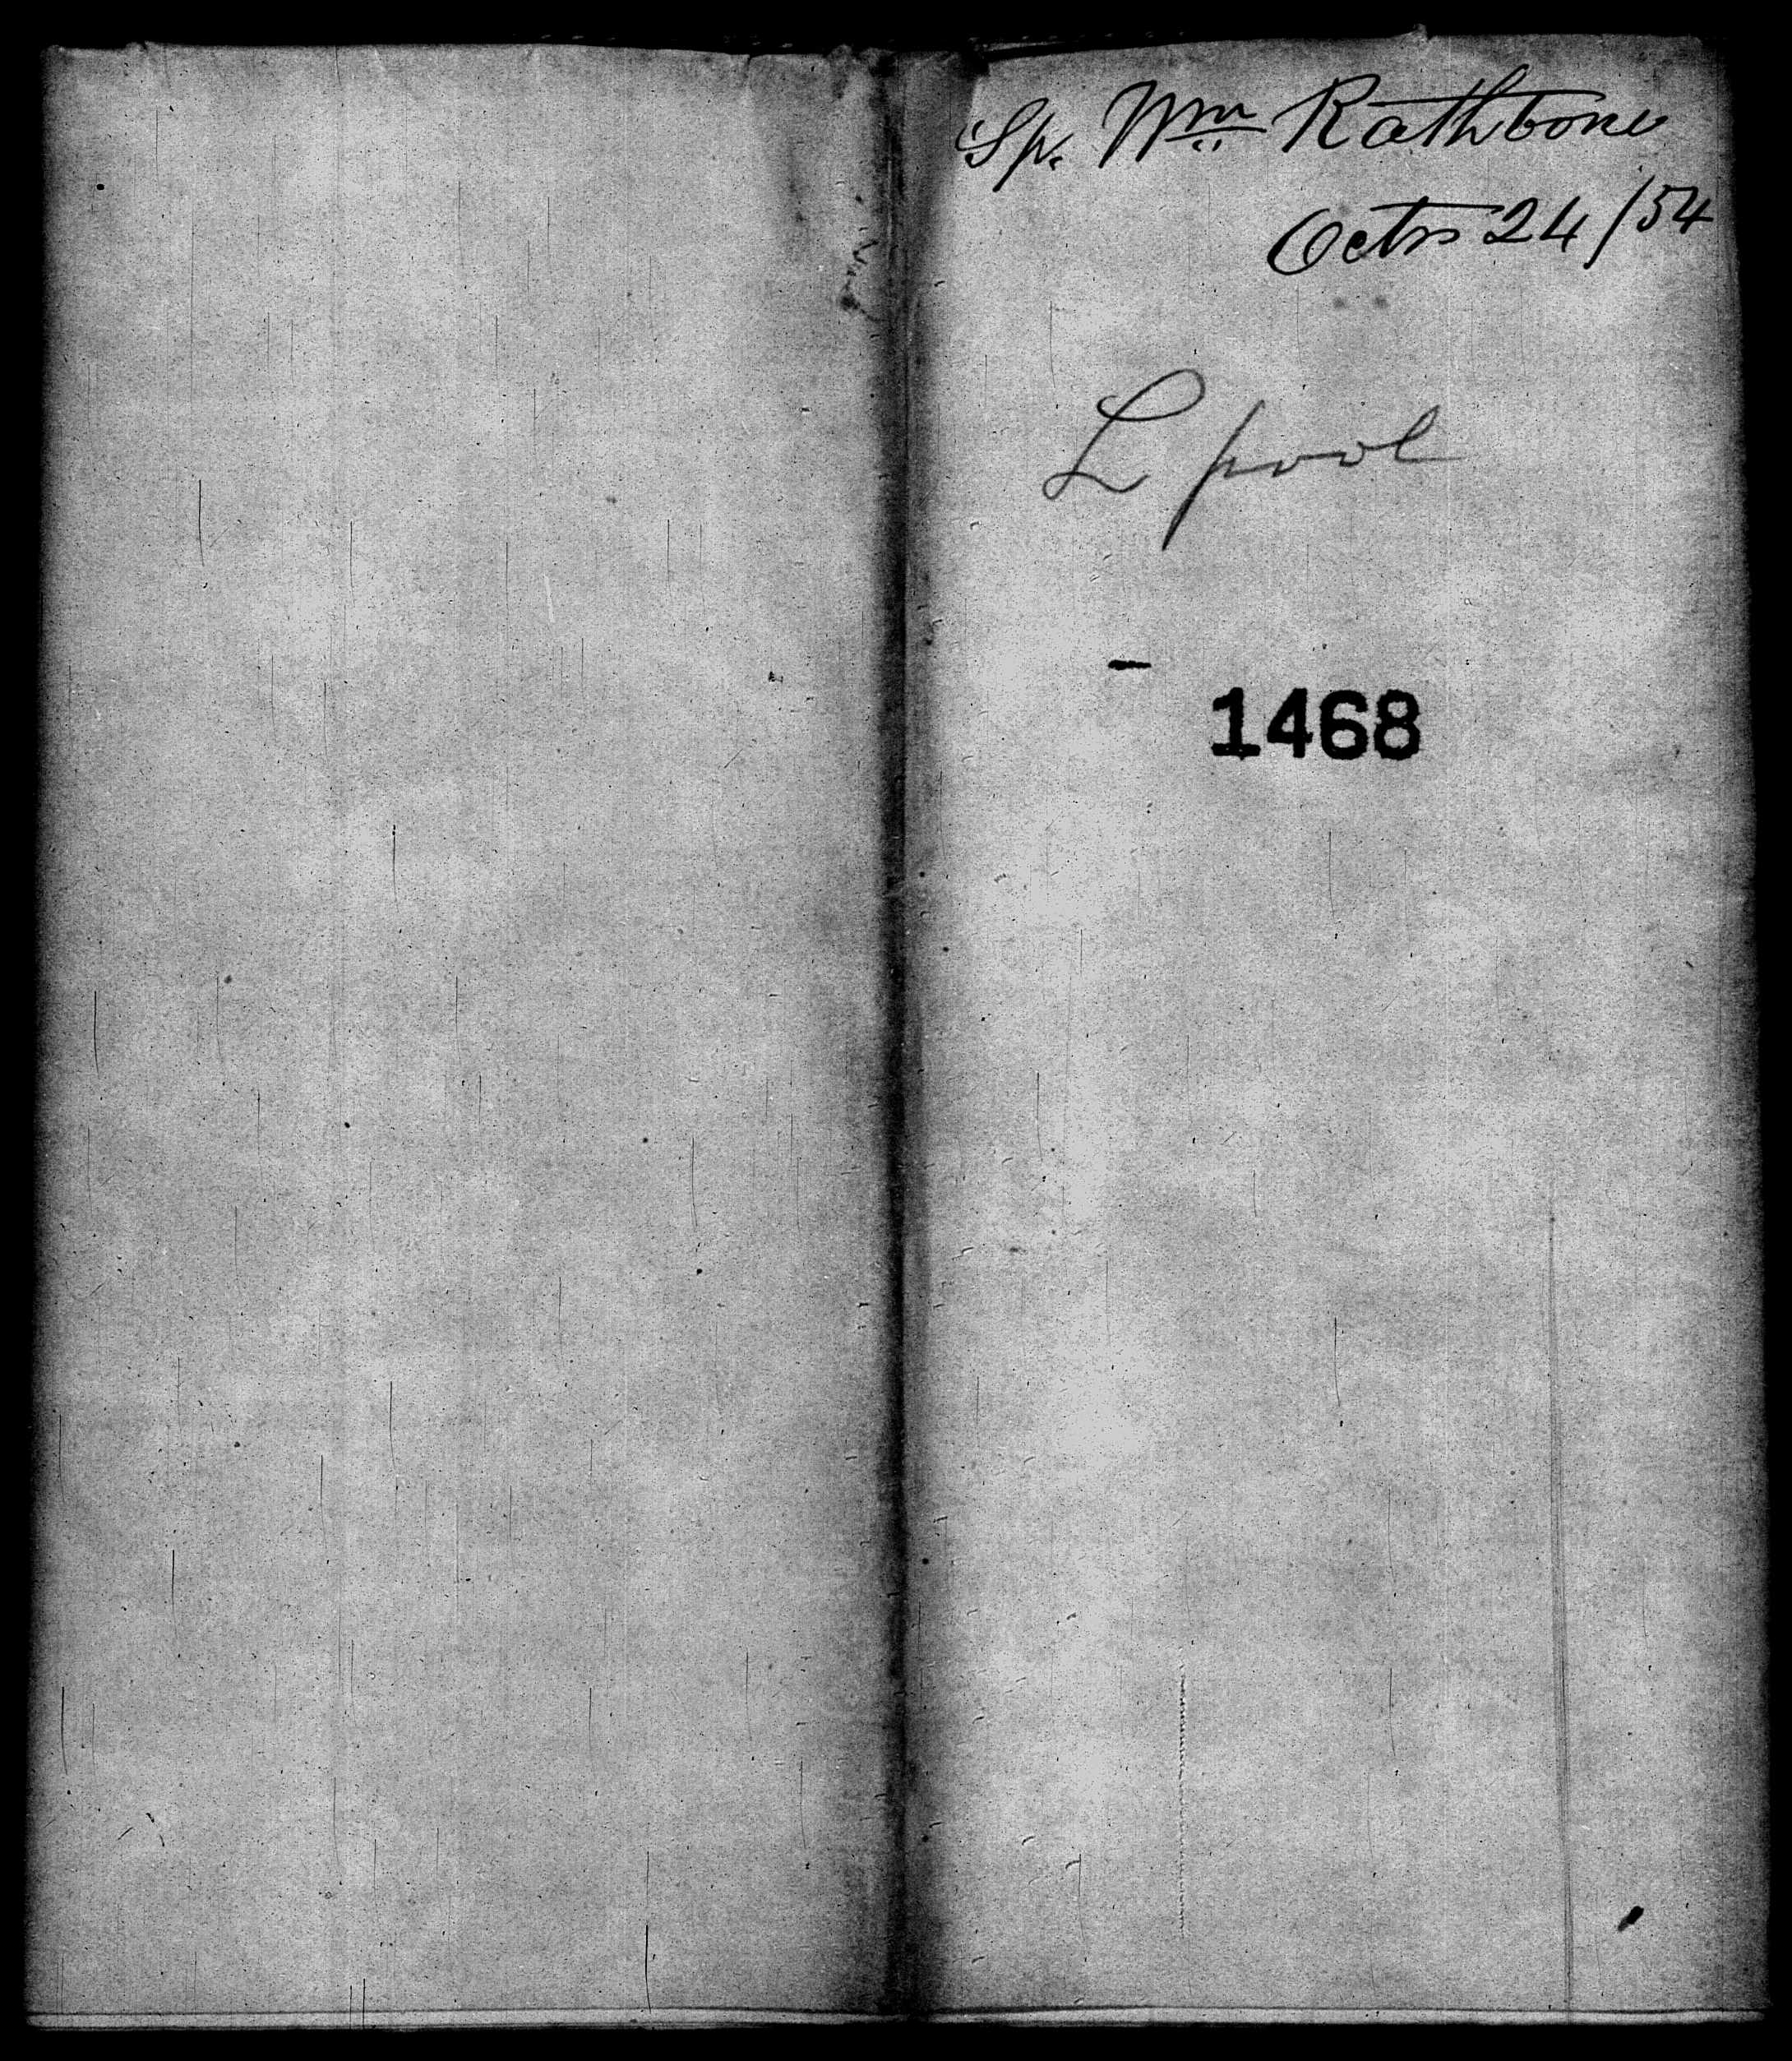 Sp. Wm Rathbone
Octr 24/54
L pool
1468